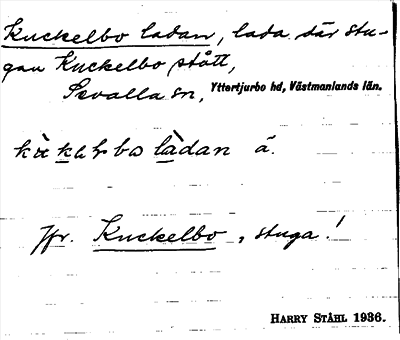 Kuckelbo ladan, lada där stu-
gan Kuckelbo stått,
Sevalla sn, Yttertjurbo hd, Västmanlands län.
làdan
Jfr. Kuckelbo, stuga!
HARRY STÅHL 1936.